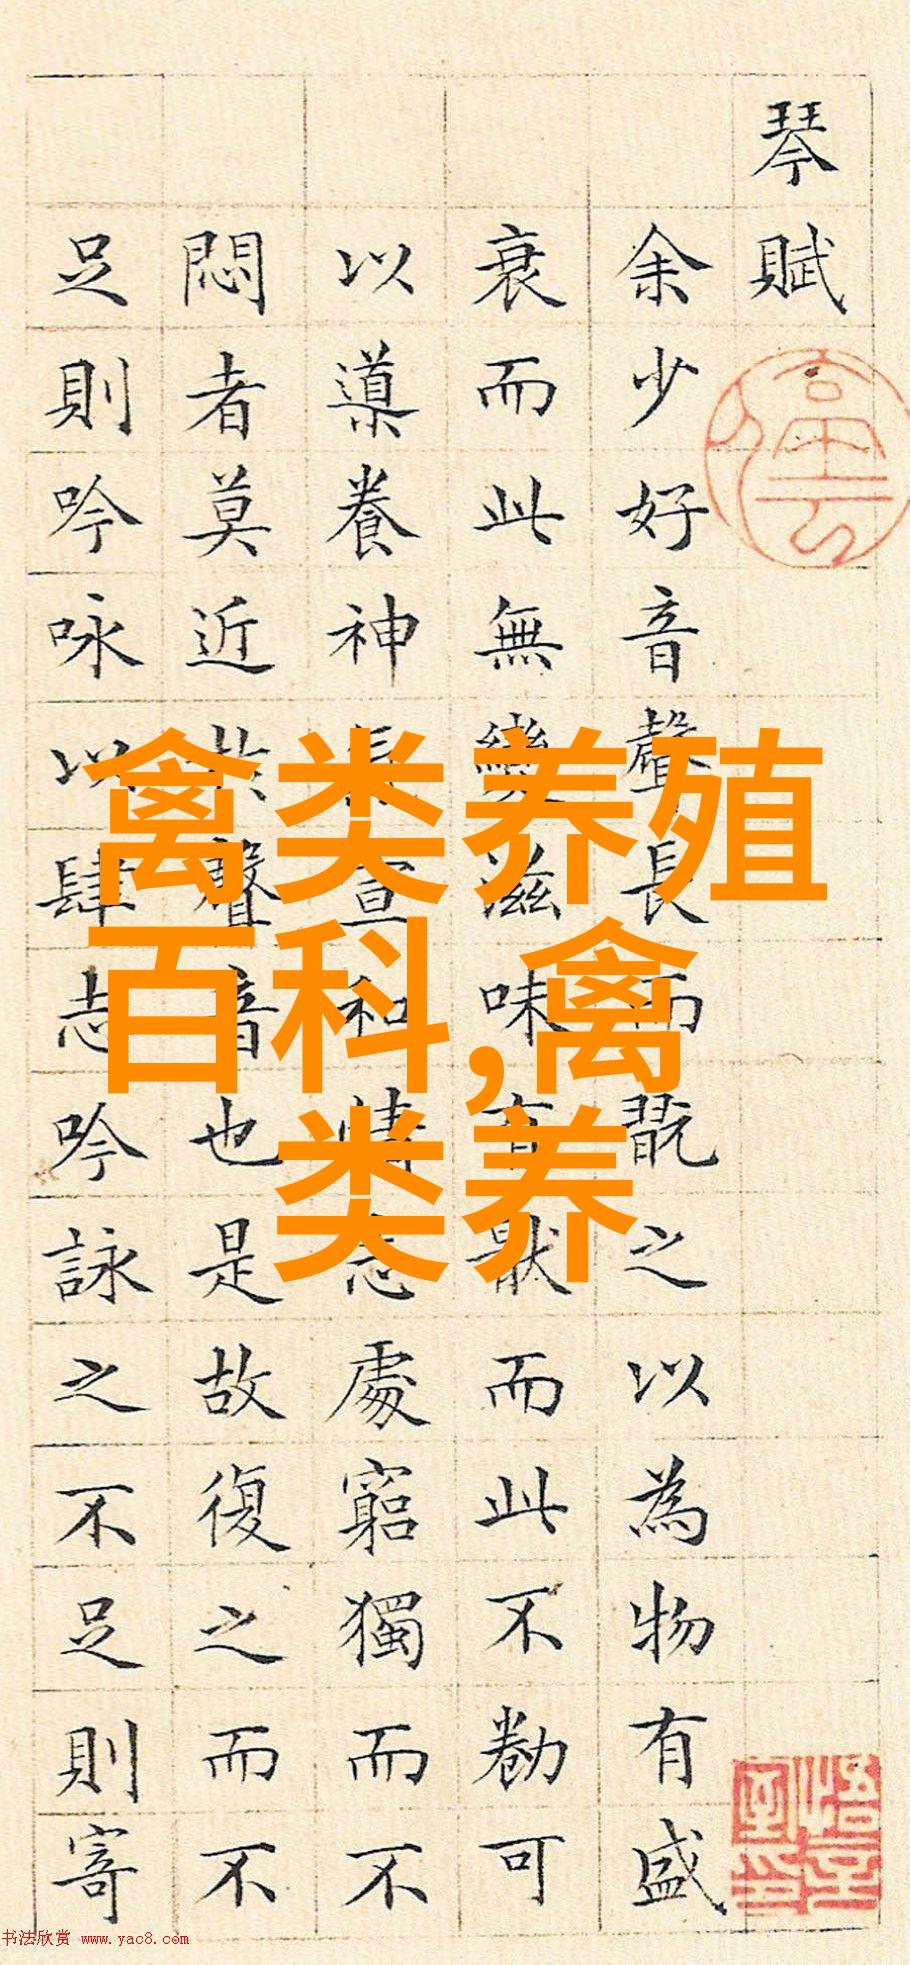 琴賦
余少好音聲長而翫之以為物有盛
衰而此無變滋味有猒而此不勌可
以導養神宣和情志處窮獨而不
悶者莫近於聲音也是故復之而不
足則吟咏以肆志吟詠之不足則寄
禽类养殖
百科,禽
类养
书法欣赏 www.yac8.com